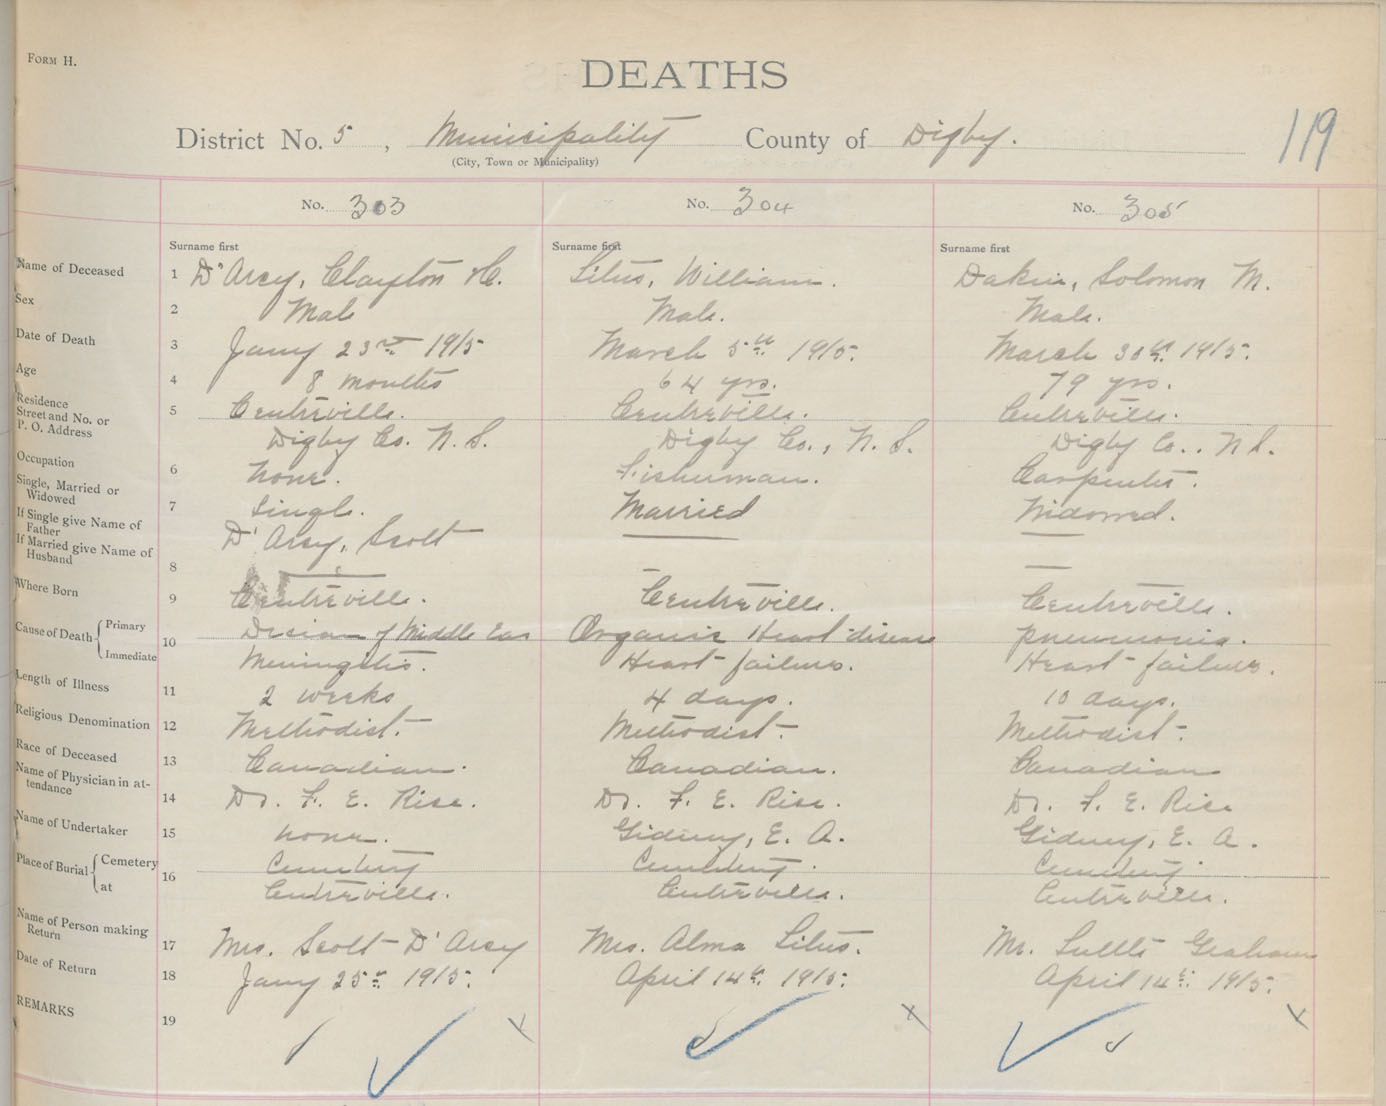 FORM H.
DEATHS
119
District No. 5, Municipality County of Digby.
(City, Town or Municipality)
No. 303 No. 304 No. 305
Surname first Surname first Surname first
Name of Deceased 1 D'Arcy, Clayton H. Titus, William. Dakin, Solomon M.
Sex 2 Male Male. Male.
Date of Death 3 Jany 23rd 1915 March 5th 1915. March 30th 1915.
Age 4 8 months 64 yrs. 79 yrs.
Residence
Street and No. or 5 Centreville. Centreville. Centreville.
P. O. Address Digby Co. N. S. Digby Co., N. S. Digby Co.. N S.
Occupation 6 None. Fisherman. Carpenter.
Single, Married or
Widowed 7 Single. Married Widowed.
If Single give Name of
Father D'Arcy, Scott
If Married give Name of
Husband 8
Where Born 9 Centreville. Centreville. Centreville.
Cause of Death Primary 10 Disease of Middle Ear Organic Heart disease Pneumonia.
Immediate Meningitis. Heart failure. Heart failure.
Length of Illness 11 2 weeks 4 days. 10 days.
Religious Denomination 12 Methodist. Methodist. Methodist.
Race of Deceased 13 Canadian. Canadian. Canadian
Name of Physician in at-
tendance 14 Dr. F. E. Rice. Dr. F. E. Rice. Dr. F. E. Rice
Name of Undertaker 15 None. Gidney, E. A. Gidney, E. A.
Place of Burial Cemetery 16 Cemetery Cemetery. Cemetery
at Centreville. Centreville. Centreville.
Name of Person making
Return 17 Mrs. Scott D'Arcy Mrs. Alma Titus. Mr. Graham
Date of Return 18 Jany 25th 1915. April 14th. 1915. April 14th. 1915.
REMARKS 19